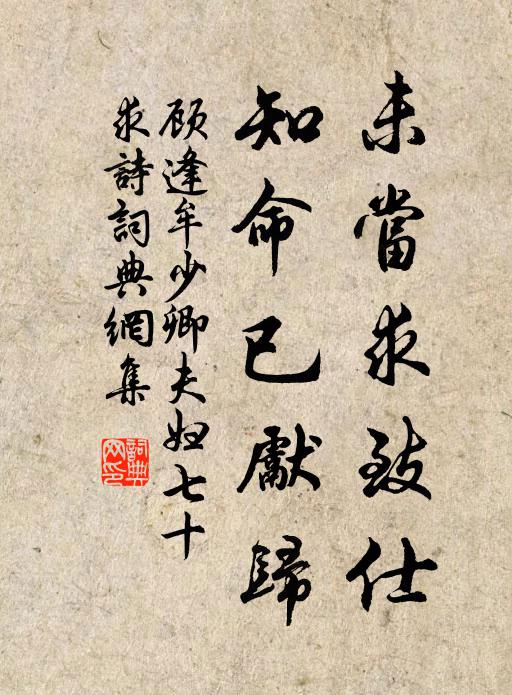 未當求致仕
知命已獻歸
顧逢牟少卿夫婦七十
求詩詞典網集
詞典網印